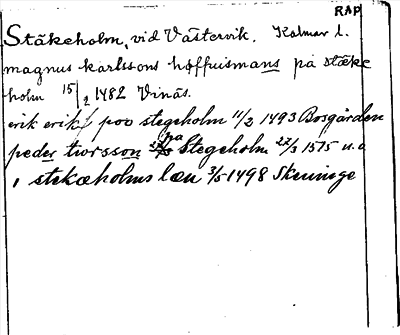 RAP
Stäkeholm, vid Västervik. Kalmar l.
magnus karlssons höffuismans på stæke
holm 15/2 1482 Vinäs.
erik erik poo stegeholm 11/2 1493 Borgården
peder tworsson på Stegeholm 22/3 1515 u.o
i stekæholms læn 3/5 1498 Skeninge